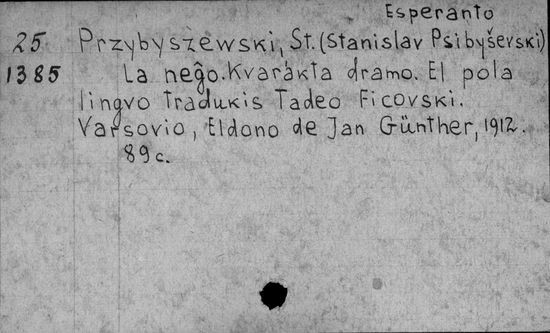 Esperanto
25 Przybyszewski, St. (Stanislav Psibyŝevski)
1385 La neĝo. Kvarakta dramo. El pola
lingvo tradukis Tadeo Ficovski.
Varsovio, Eldono de Jan Günther, 1912.
89 c.